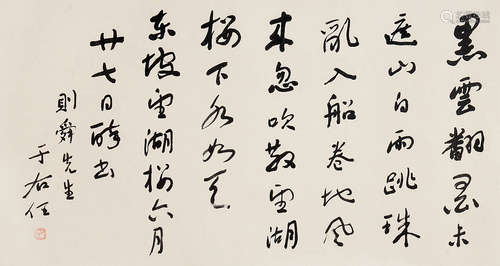 黑雲翻墨未
遮山白雨跳珠
亂入船卷地風
來忽吹散望湖
樓下水如天
東坡望湖樓六月
廿七日醉書
則舜先生
于右任